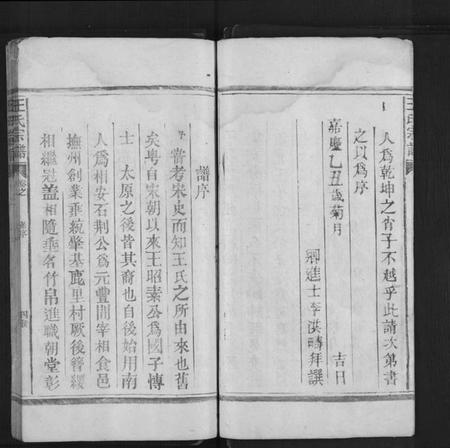 王氏宗譜
人爲乾坤之肖子不越乎此請次第書
之以爲序
嘉慶乙丑歲菊月 吉日
鄉進士李洪疇拜譔
譜序
嘗考宋史而知王氏之所由來也舊
矣粤自宋朝以來王昭素公爲國子博
士 太原之後皆其裔也自後始用南
人爲相安石荆公爲元豐間宰相食邑
撫州創業垂統肇基鹿里村厥後簪纓
相繼冠蓋相隨垂名竹帛進職朝堂彰
王氏宗譜